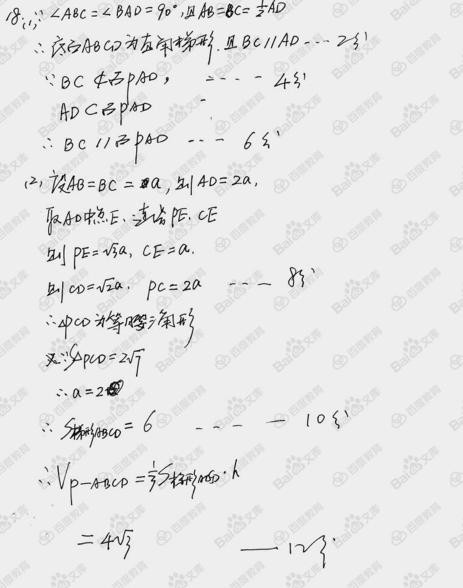 18.(1)∵∠ABC=∠BAD=90°,且AB=BC=½AD
∴底面ABCD为直角梯形,且BC//AD ---- 2分
∵BC⊄面PAD, ---- 4分
AD⊂面PAD
∴BC//面PAD --- 6分
(2)设AB=BC=a,则AD=2a,
取AD中点E,连结PE、CE
则PE=√3a, CE=a.
则CD=√2a, PC=2a ---- 8分
∴△PCD为等腰三角形
又∵S△PCD=2√7
∴a=2
∴S梯形ABCD=6 ---- 10分
∴VP-ABCD=⅓S梯形ABCD·h
=4√3 —12分